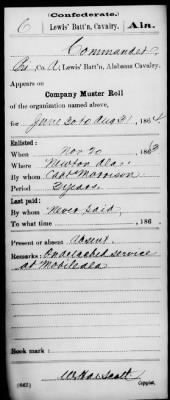 (Confederate.)
C | Lewis' Batt'n, Cavalry. | Ala.
Commander
Co. A, Lewis' Batt'n, Alabama Cavalry.
Appears on
Company Muster Roll
of the organization named above,
for June 30 to Aug 31, 1864
Enlisted:
When Nov 20, 1863
Where Newton Ala.
By whom Capt Morrison
Period 3 years.
Last paid:
By whom Never paid,
To what time , 186 .
Present or absent Absent.
Remarks: On detached service
at Mobile Ala
Book mark:
Scott
(642) Copyist.